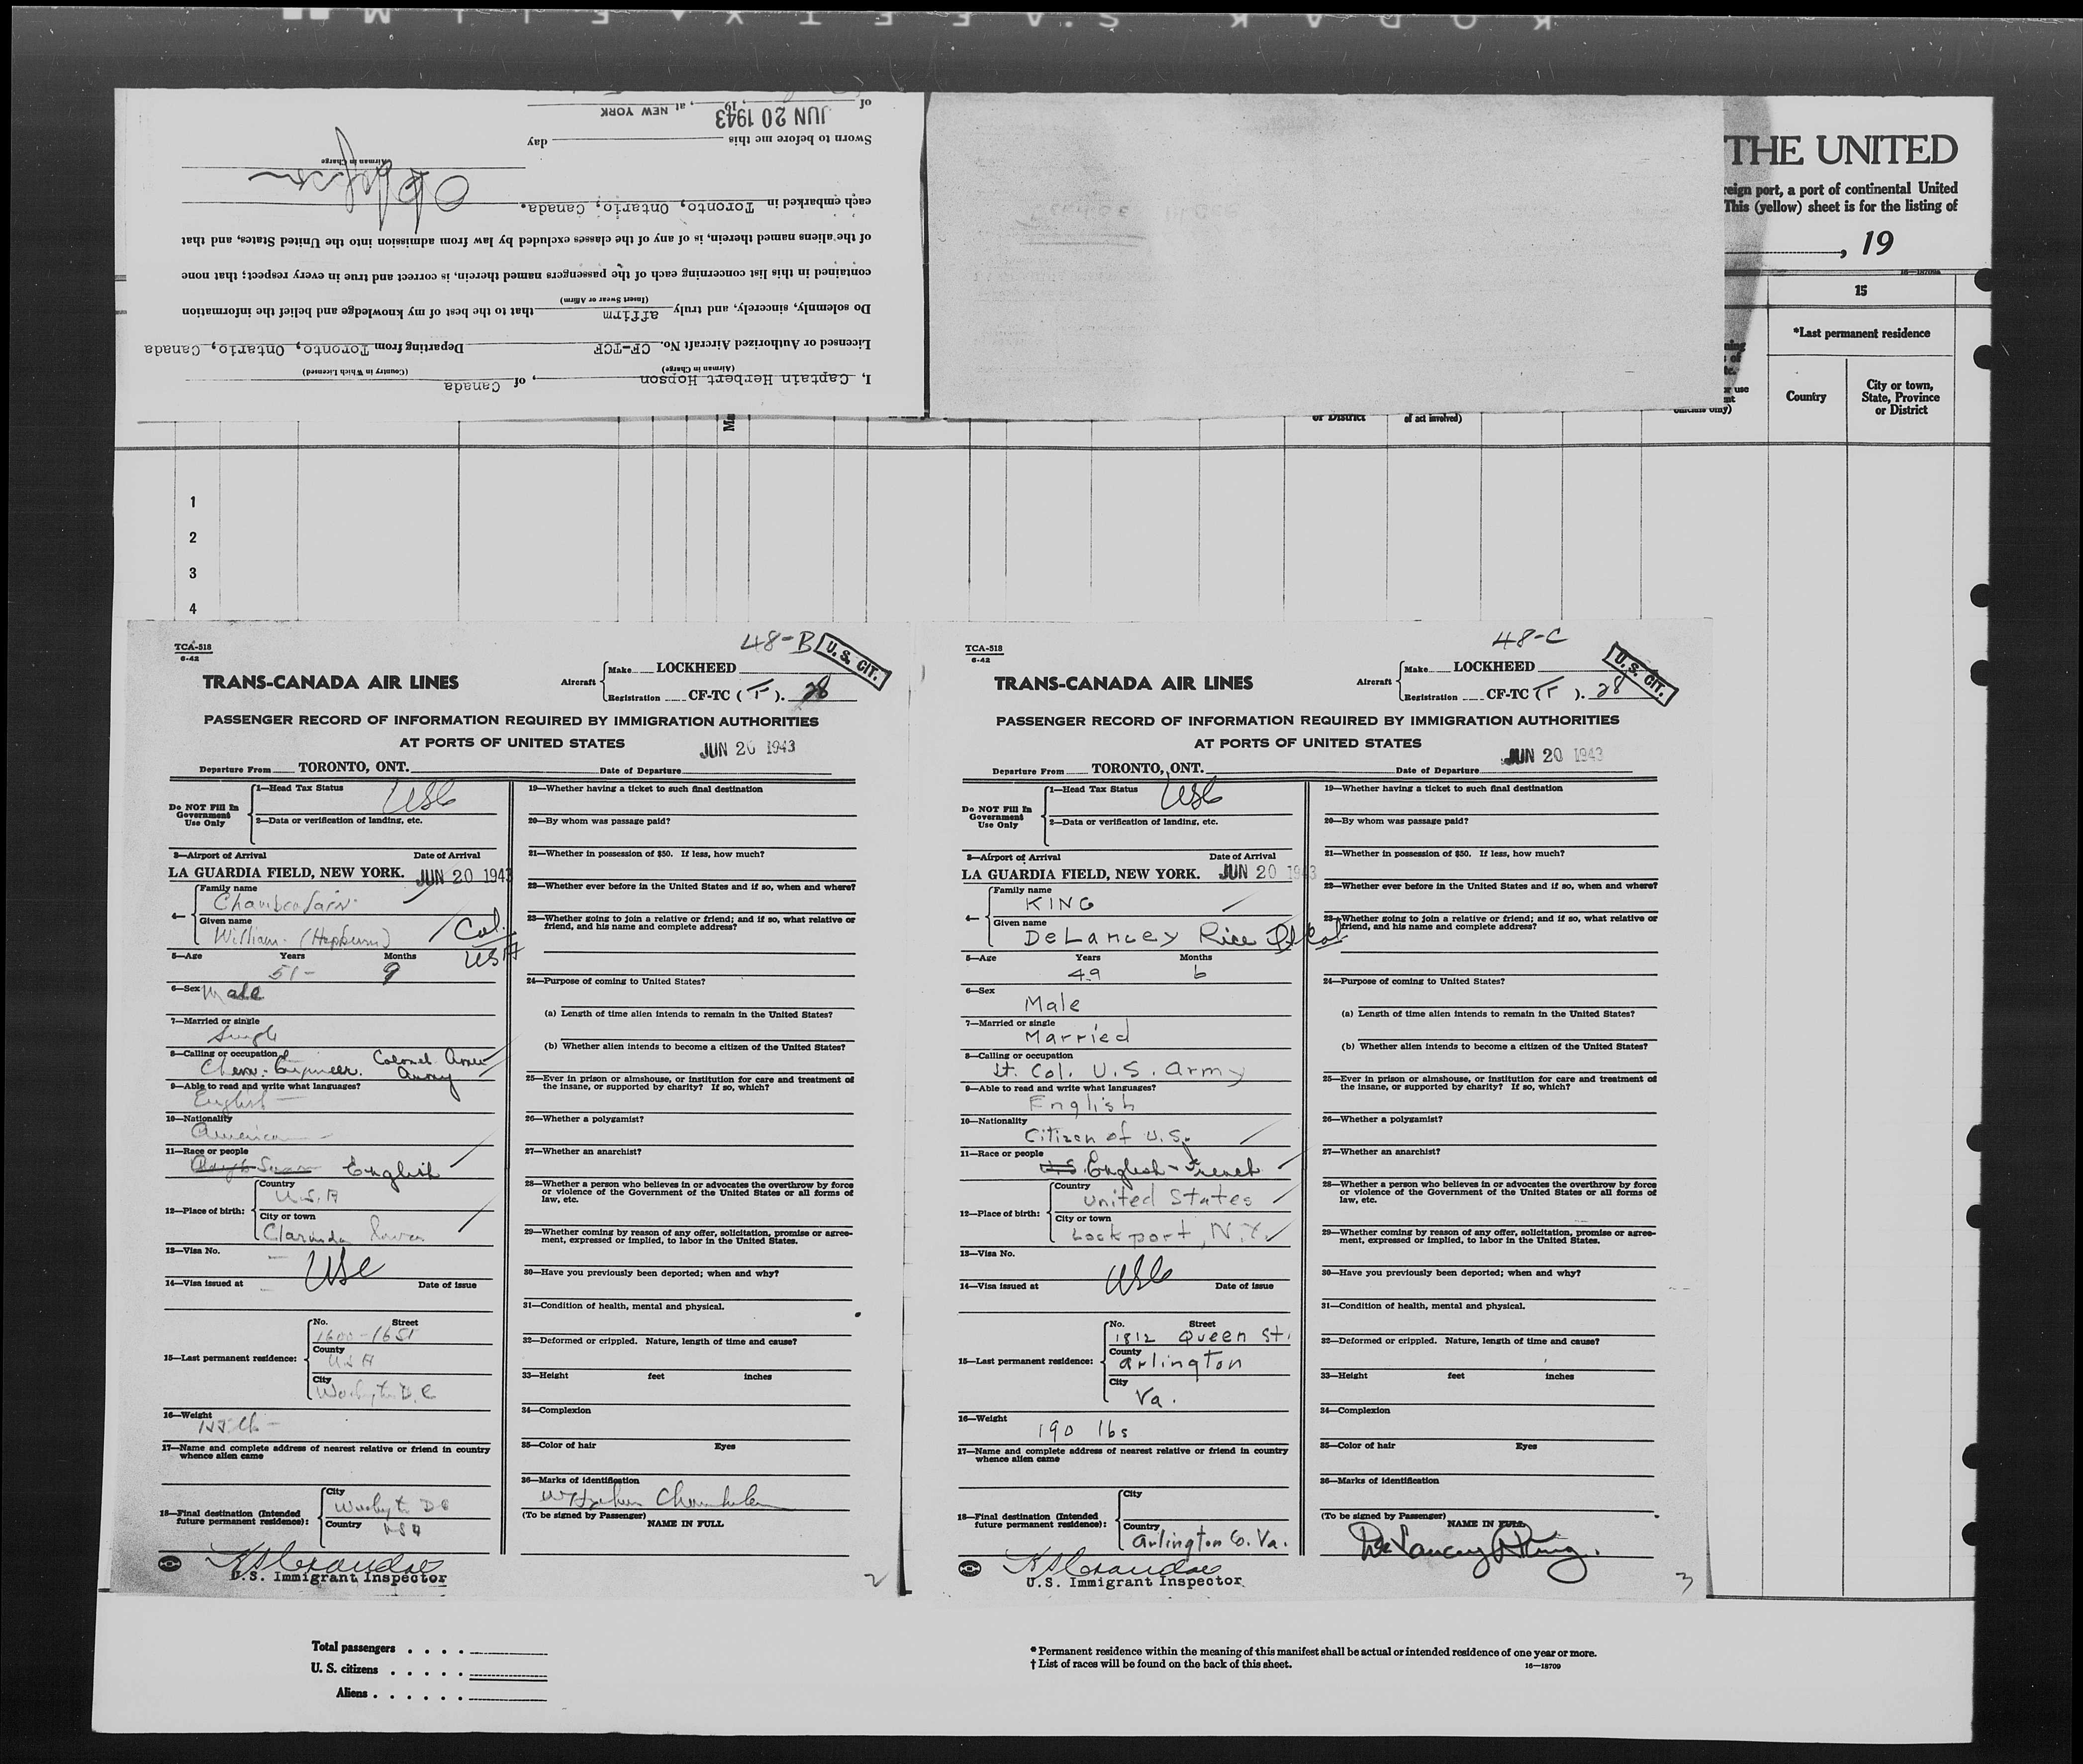 KODAK S.AFETY FILM
THE UNITED
reign port, a port of continental United
This (yellow) sheet is for the listing of
, 19
16—18709A
15
*Last permanent residence
Country
City or town,
State, Province
or District
I, Captain Herbert Hopson, of Canada
(Airman in Charge) (Country in Which Licensed)
Licensed or Authorized Aircraft No. CF-TCF Departing from Toronto, Ontario, Canada
Do solemnly, sincerely, and truly affirm that to the best of my knowledge and belief the information
(Insert Swear or Affirm)
contained in this list concerning each of the passengers named therein, is correct and true in every respect; that none
of the aliens named therein, is of any of the classes excluded by law from admission into the United States, and that
each embarked in Toronto, Ontario, Canada.
Airman in Charge
Sworn to before me this day
of JUN 20 1943, 19 , at NEW YORK
or District
of act involved)
1
2
3
4
TCA-518
6-42
48-B
U. S. CIT.
TRANS-CANADA AIR LINES
Aircraft
Make LOCKHEED
Registration CF-TC (F). 28
PASSENGER RECORD OF INFORMATION REQUIRED BY IMMIGRATION AUTHORITIES
AT PORTS OF UNITED STATES
JUN 20 1943
Departure From TORONTO, ONT. Date of Departure
Do NOT Fill In
Government
Use Only
1—Head Tax Status USC
2—Data or verification of landing, etc.
3—Airport of Arrival Date of Arrival
LA GUARDIA FIELD, NEW YORK. JUN 20 1943
4—
Family name
Chamberlain
Given name
William (Hepburn)
Col.
USA
5—Age Years Months
51 9
6—Sex Male
7—Married or single
Single
8—Calling or occupation
Chem. Engineer. Colonel Army
9—Able to read and write what languages?
English
10—Nationality
American
11—Race or people
English
12—Place of birth:
Country
U.S.A
City or town
Clarinda Iowa
13—Visa No.
USC
14—Visa issued at Date of issue
15—Last permanent residence:
No. Street
1600-16St
County
USA
City
Washington D.C
16—Weight
17—Name and complete address of nearest relative or friend in country
whence alien came
18—Final destination (Intended
future permanent residence):
City
Washington DC
Country
USA
U.S. Immigrant Inspector
2
19—Whether having a ticket to such final destination
20—By whom was passage paid?
21—Whether in possession of $50. If less, how much?
22—Whether ever before in the United States and if so, when and where?
23—Whether going to join a relative or friend; and if so, what relative or
friend, and his name and complete address?
24—Purpose of coming to United States?
(a) Length of time alien intends to remain in the United States?
(b) Whether alien intends to become a citizen of the United States?
25—Ever in prison or almshouse, or institution for care and treatment of
the insane, or supported by charity? If so, which?
26—Whether a polygamist?
27—Whether an anarchist?
28—Whether a person who believes in or advocates the overthrow by force
or violence of the Government of the United States or all forms of
law, etc.
29—Whether coming by reason of any offer, solicitation, promise or agree-
ment, expressed or implied, to labor in the United States.
30—Have you previously been deported; when and why?
31—Condition of health, mental and physical.
32—Deformed or crippled. Nature, length of time and cause?
33—Height feet inches
34—Complexion
35—Color of hair Eyes
36—Marks of identification
Wm Hepburn Chamberlain
(To be signed by Passenger)
NAME IN FULL
TCA-518
6-42
48-C
U. S. CIT.
TRANS-CANADA AIR LINES
Aircraft
Make LOCKHEED
Registration CF-TC (F). 28
PASSENGER RECORD OF INFORMATION REQUIRED BY IMMIGRATION AUTHORITIES
AT PORTS OF UNITED STATES
JUN 20 1943
Departure From TORONTO, ONT. Date of Departure
Do NOT Fill In
Government
Use Only
1—Head Tax Status USC
2—Data or verification of landing, etc.
3—Airport of Arrival Date of Arrival
LA GUARDIA FIELD, NEW YORK. JUN 20 1943
4—
Family name
KING
Given name
DeLancey Rice Lt Col
5—Age Years Months
49 6
6—Sex
Male
7—Married or single
Married
8—Calling or occupation
Lt. Col. U.S. Army
9—Able to read and write what languages?
English
10—Nationality
Citizen of U.S.
11—Race or people
U.S. English - French
12—Place of birth:
Country
United States
City or town
Lockport, N.Y.
13—Visa No.
USC
14—Visa issued at Date of issue
15—Last permanent residence:
No. Street
1812 Queen St.
County
Arlington
City
Va.
16—Weight
190 lbs
17—Name and complete address of nearest relative or friend in country
whence alien came
18—Final destination (Intended
future permanent residence):
City
Country
Arlington Co. Va.
U.S. Immigrant Inspector
19—Whether having a ticket to such final destination
20—By whom was passage paid?
21—Whether in possession of $50. If less, how much?
22—Whether ever before in the United States and if so, when and where?
23—Whether going to join a relative or friend; and if so, what relative or
friend, and his name and complete address?
24—Purpose of coming to United States?
(a) Length of time alien intends to remain in the United States?
(b) Whether alien intends to become a citizen of the United States?
25—Ever in prison or almshouse, or institution for care and treatment of
the insane, or supported by charity? If so, which?
26—Whether a polygamist?
27—Whether an anarchist?
28—Whether a person who believes in or advocates the overthrow by force
or violence of the Government of the United States or all forms of
law, etc.
29—Whether coming by reason of any offer, solicitation, promise or agree-
ment, expressed or implied, to labor in the United States.
30—Have you previously been deported; when and why?
31—Condition of health, mental and physical.
32—Deformed or crippled. Nature, length of time and cause?
33—Height feet inches
34—Complexion
35—Color of hair Eyes
36—Marks of identification
(To be signed by Passenger)
NAME IN FULL
DeLancey R King.
3
Total passengers . . . .
U. S. citizens . . . . .
Aliens . . . . . .
* Permanent residence within the meaning of this manifest shall be actual or intended residence of one year or more.
† List of races will be found on the back of this sheet.
16—18709